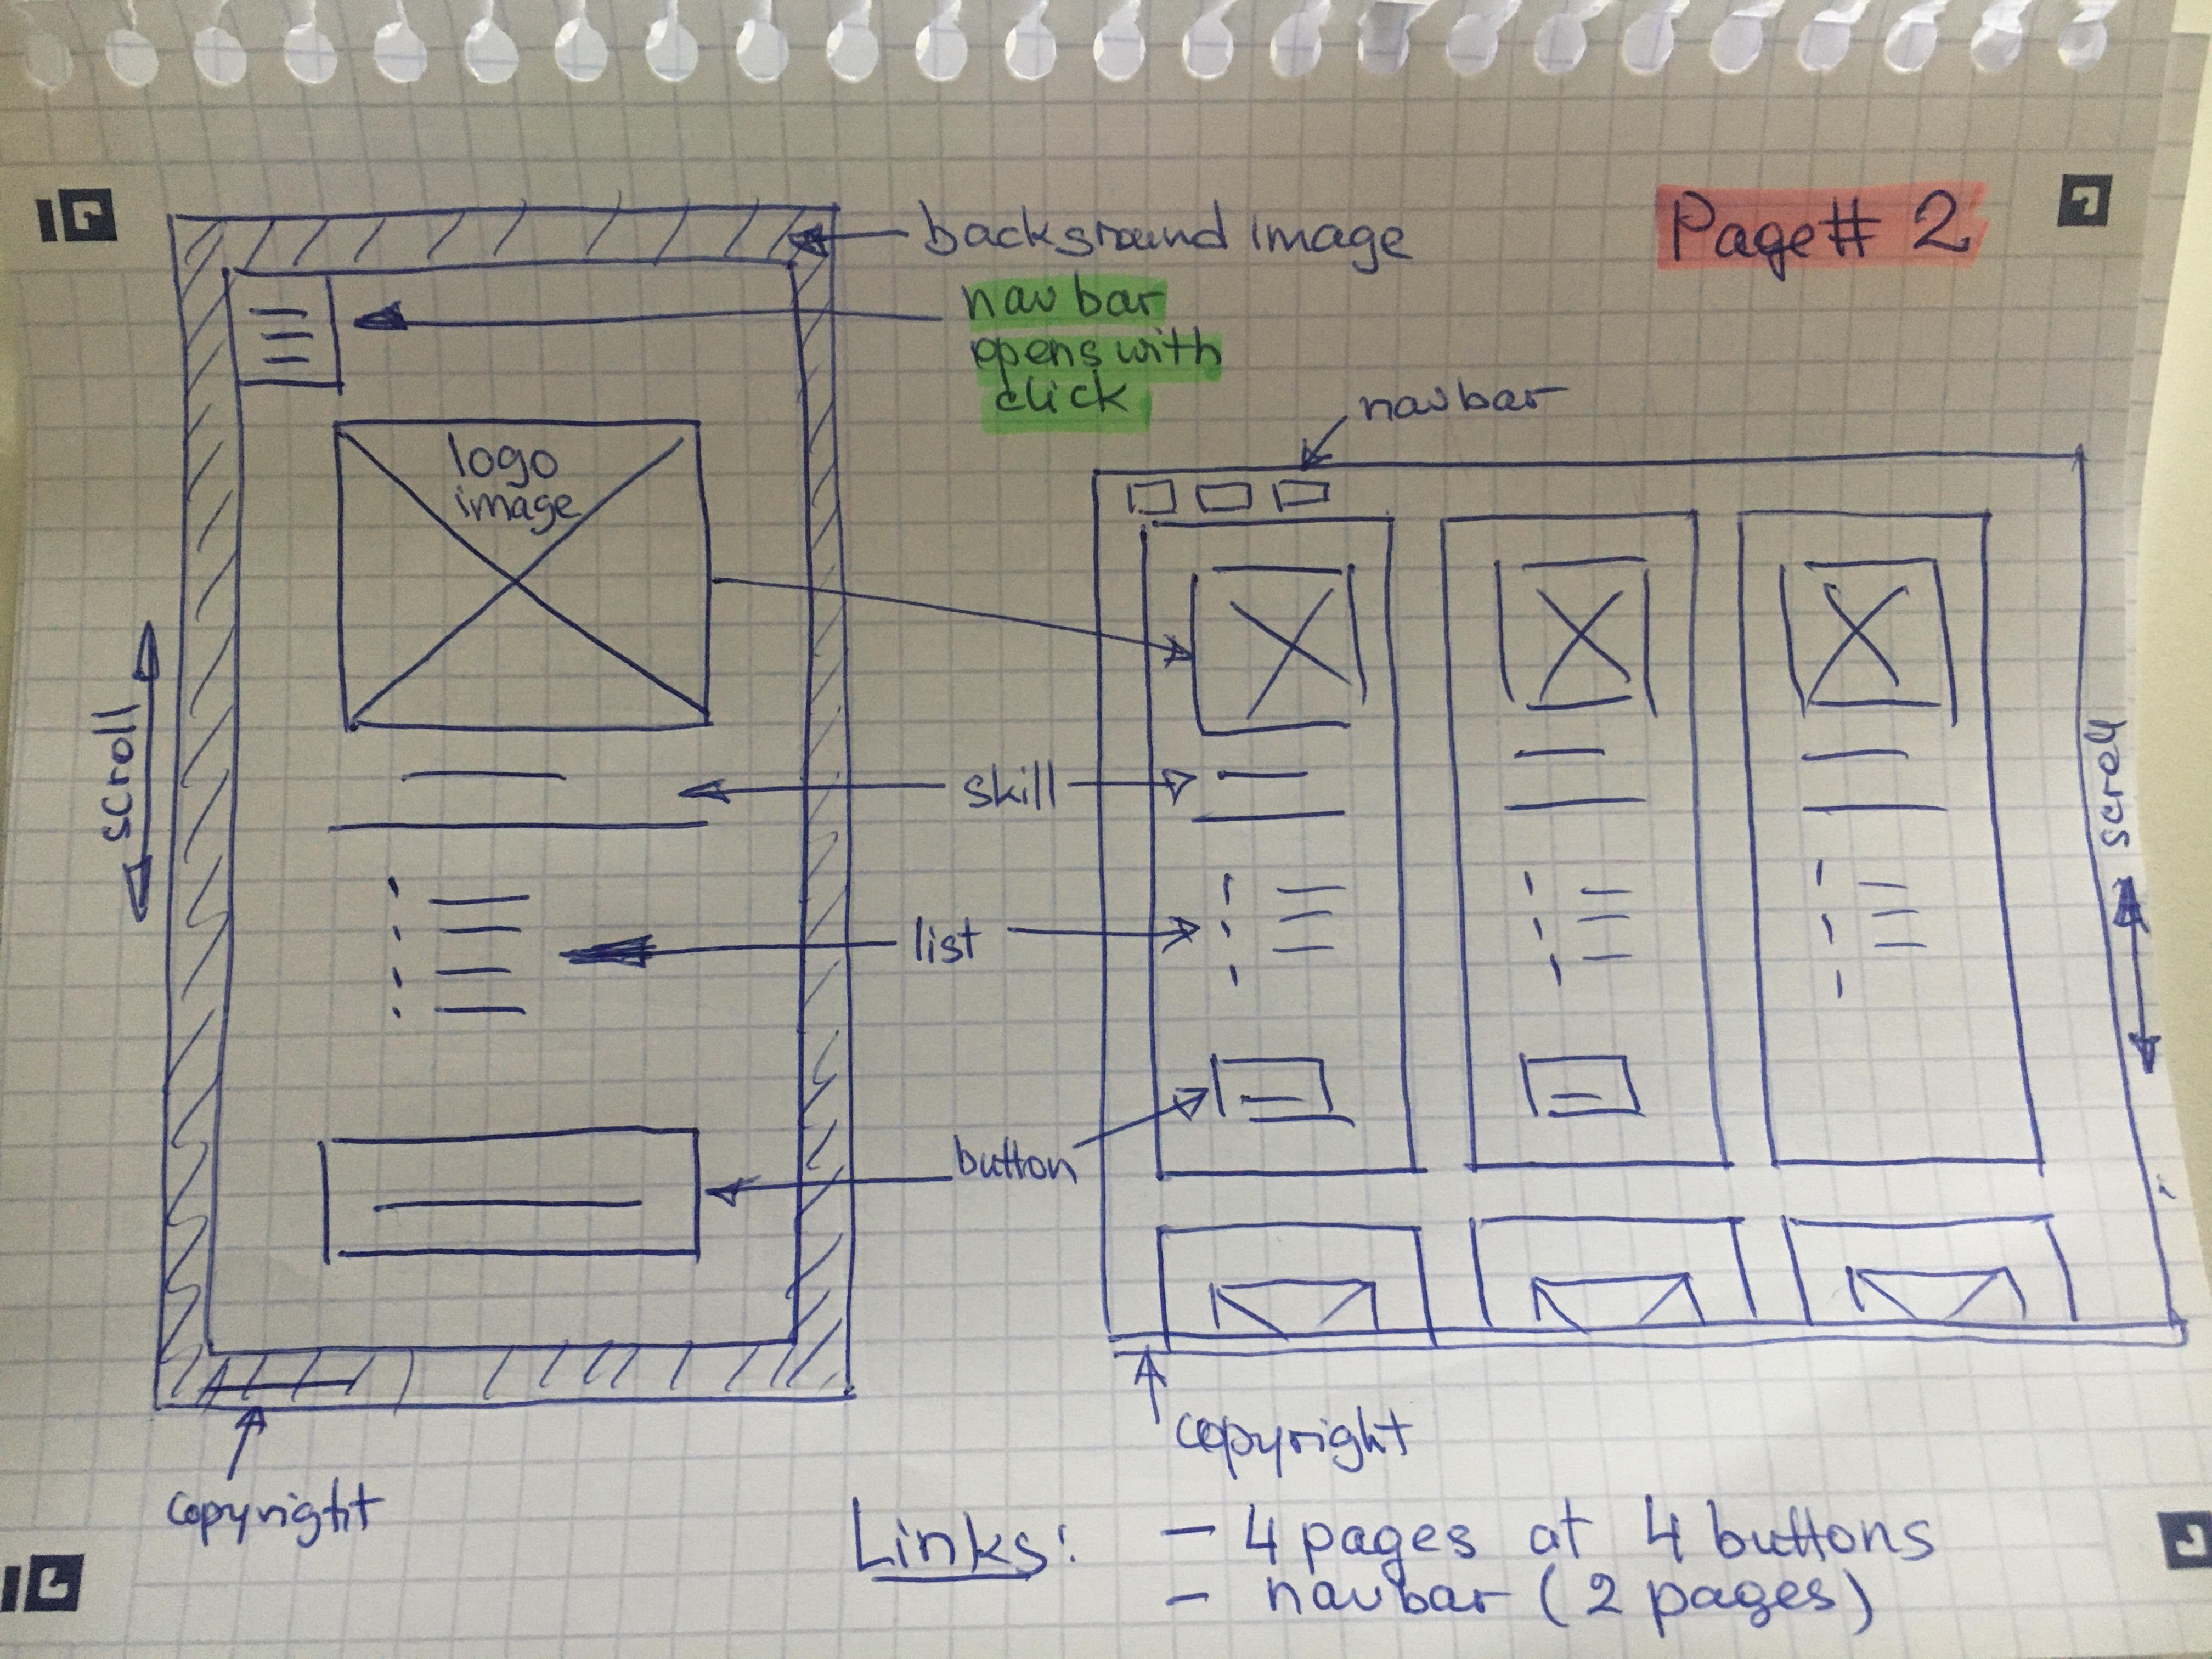 Page# 2
background image
nav bar
opens with
click
navbar
logo
image
scroll
scroll
skill
list
button
copyright
copyright
Links: – 4 pages at 4 buttons
– navbar (2 pages)